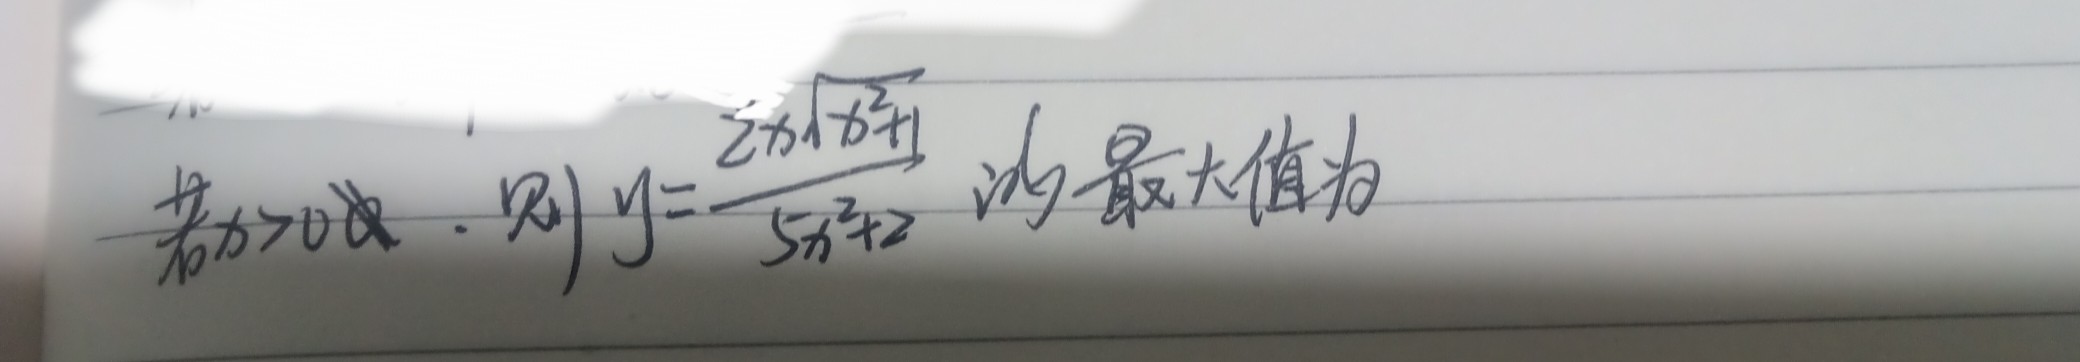 若x>0，则 y=\frac{2x\sqrt{x^2+1}}{5x^2+2} 的最大值为